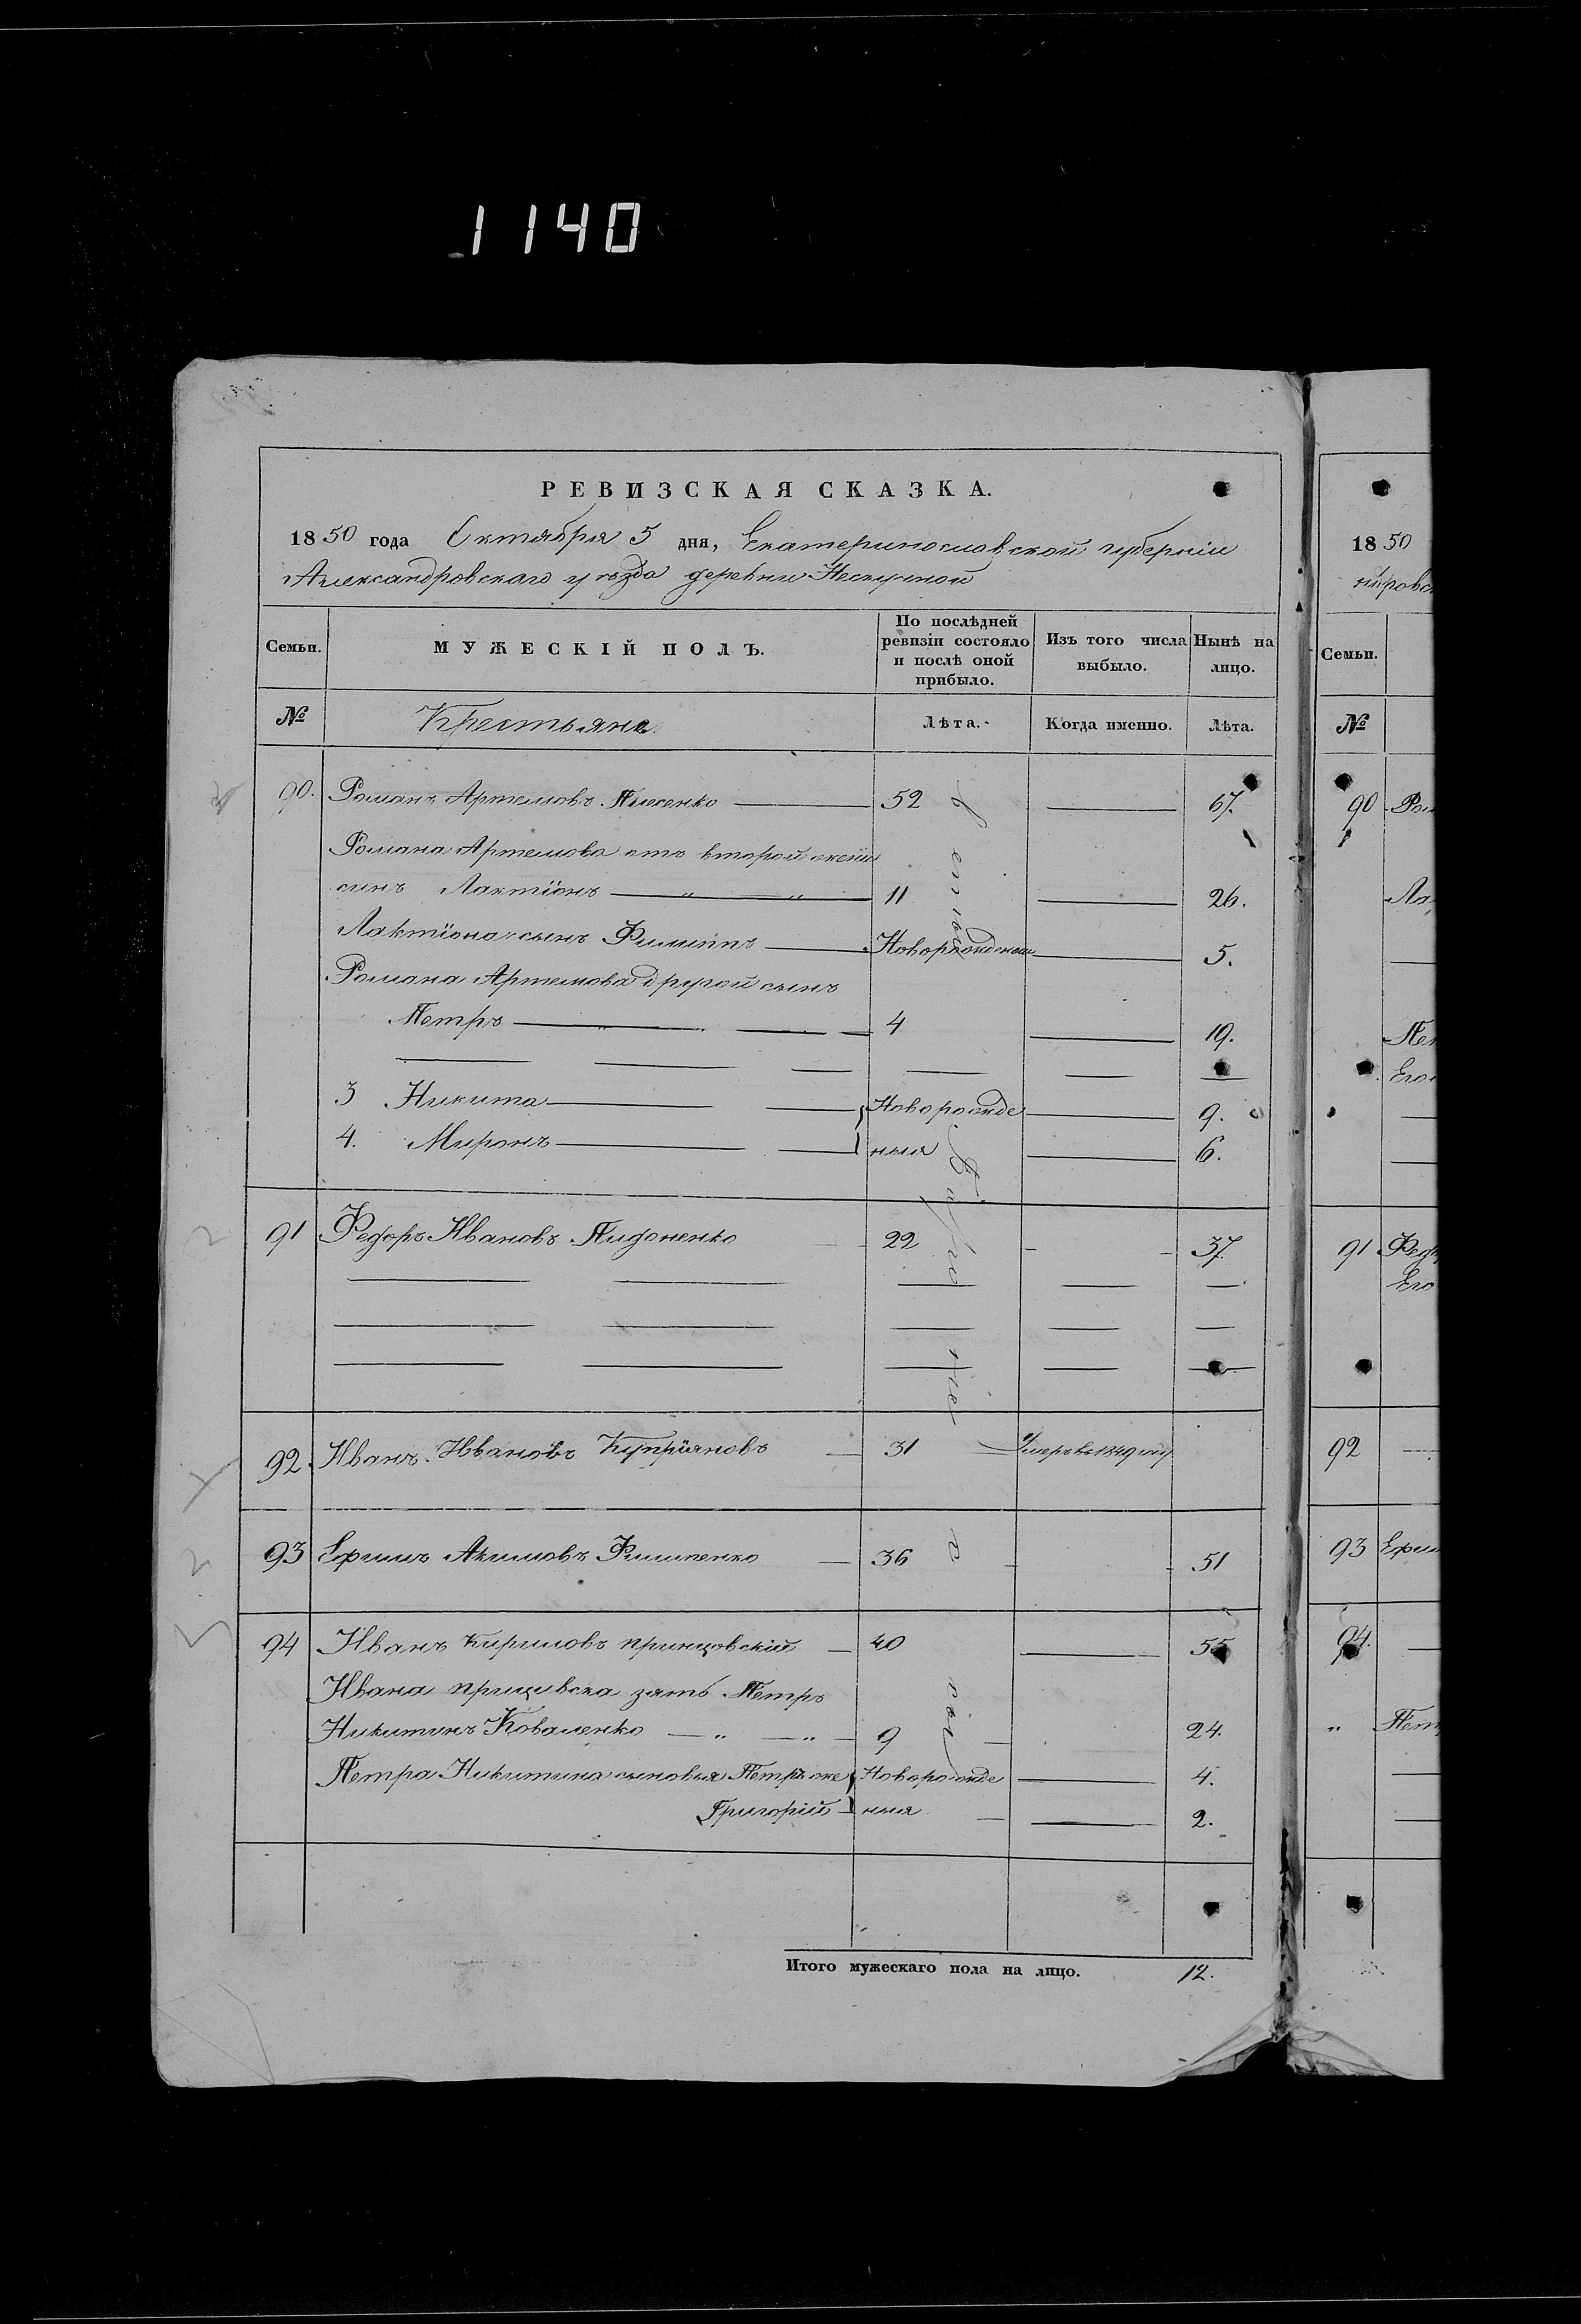 1140
РЕВИЗСКАЯ СКАЗКА.
1850 года Октября 5 дня, Екатеринославской губернии
Александровскаго уѣзда деревни Нескучной
Семьи. МУЖЕСКІЙ ПОЛЪ. По послѣдней ревизіи состояло и послѣ оной прибыло. Изъ того числа выбыло. Нынѣ на лицо.
№ Крестьяне. Лѣта. Когда именно. Лѣта.
90. Романъ Артемовъ 52 67.
Романа Артемова отъ второй жены
сынъ Лактіонъ 11 26.
Лактіона сынъ Филиппъ Новорожденой 5.
Романа Артемова другой сынъ
Петръ 4 19.
3 Никита Новорожде 9.
4. Миронъ ныя 6.
91 Федоръ Ивановъ Пидоненко 22 37.
92. Иванъ Ивановъ Купріяновъ 31 Умеръ въ 1849 году
93 Ефимъ Акимовъ Филипенко 36 51
94 Иванъ Кириловъ 40 55
Ивана зять Петръ
Никитинъ Коваленко 9 24.
Петра Никитина сыновья Новорожде 4.
Григорій ныя 2.
Итого мужескаго пола на лицо. 12.
1850
Семьи.
№
90
91
92
93
94.